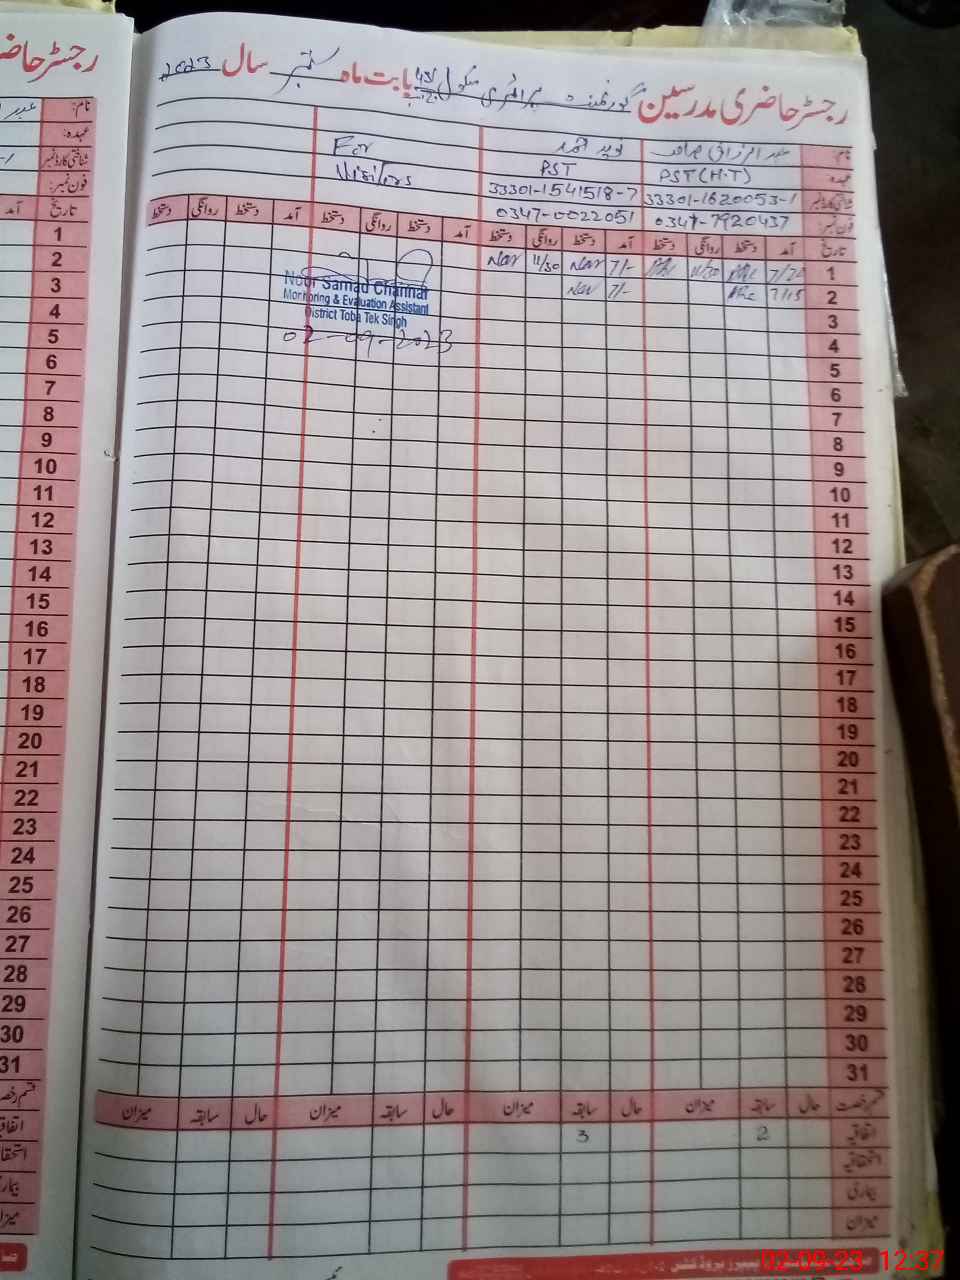 رجسٹر حاضری مدرسین گورنمنٹ پرائمری سکول بابت ماہ ستمبر سال 2023
نام: عبدالرزاق صاحب نوید احمد For
عہدہ: PST(H.T) PST Visitors
شناختی کارڈ نمبر 33301-1620053-1 33301-1541518-7
فون نمبر: 0347-7920437 0347-0022051
تاریخ آمد دستخط روانگی دستخط آمد دستخط روانگی دستخط آمد دستخط روانگی دستخط آمد دستخط روانگی دستخط
1 11/30 7/- 11/30
2 7/15 7/-
Noor Samad Channar
Monitoring & Evaluation Assistant
District Toba Tek Singh
02-09-2023
3
4
5
6
7
8
9
10
11
12
13
14
15
16
17
18
19
20
21
22
23
24
25
26
27
28
29
30
31
قسم رخصت حال سابقہ میزان حال سابقہ میزان حال سابقہ میزان حال سابقہ میزان
اتفاقیہ 2 3
استحقاقیہ
بیماری
میزان
رجسٹر حاضری
نام:
عہدہ:
شناختی کارڈ نمبر
فون نمبر:
تاریخ آمد
1
2
3
4
5
6
7
8
9
10
11
12
13
14
15
16
17
18
19
20
21
22
23
24
25
26
27
28
29
30
31
02-09-23 12:37